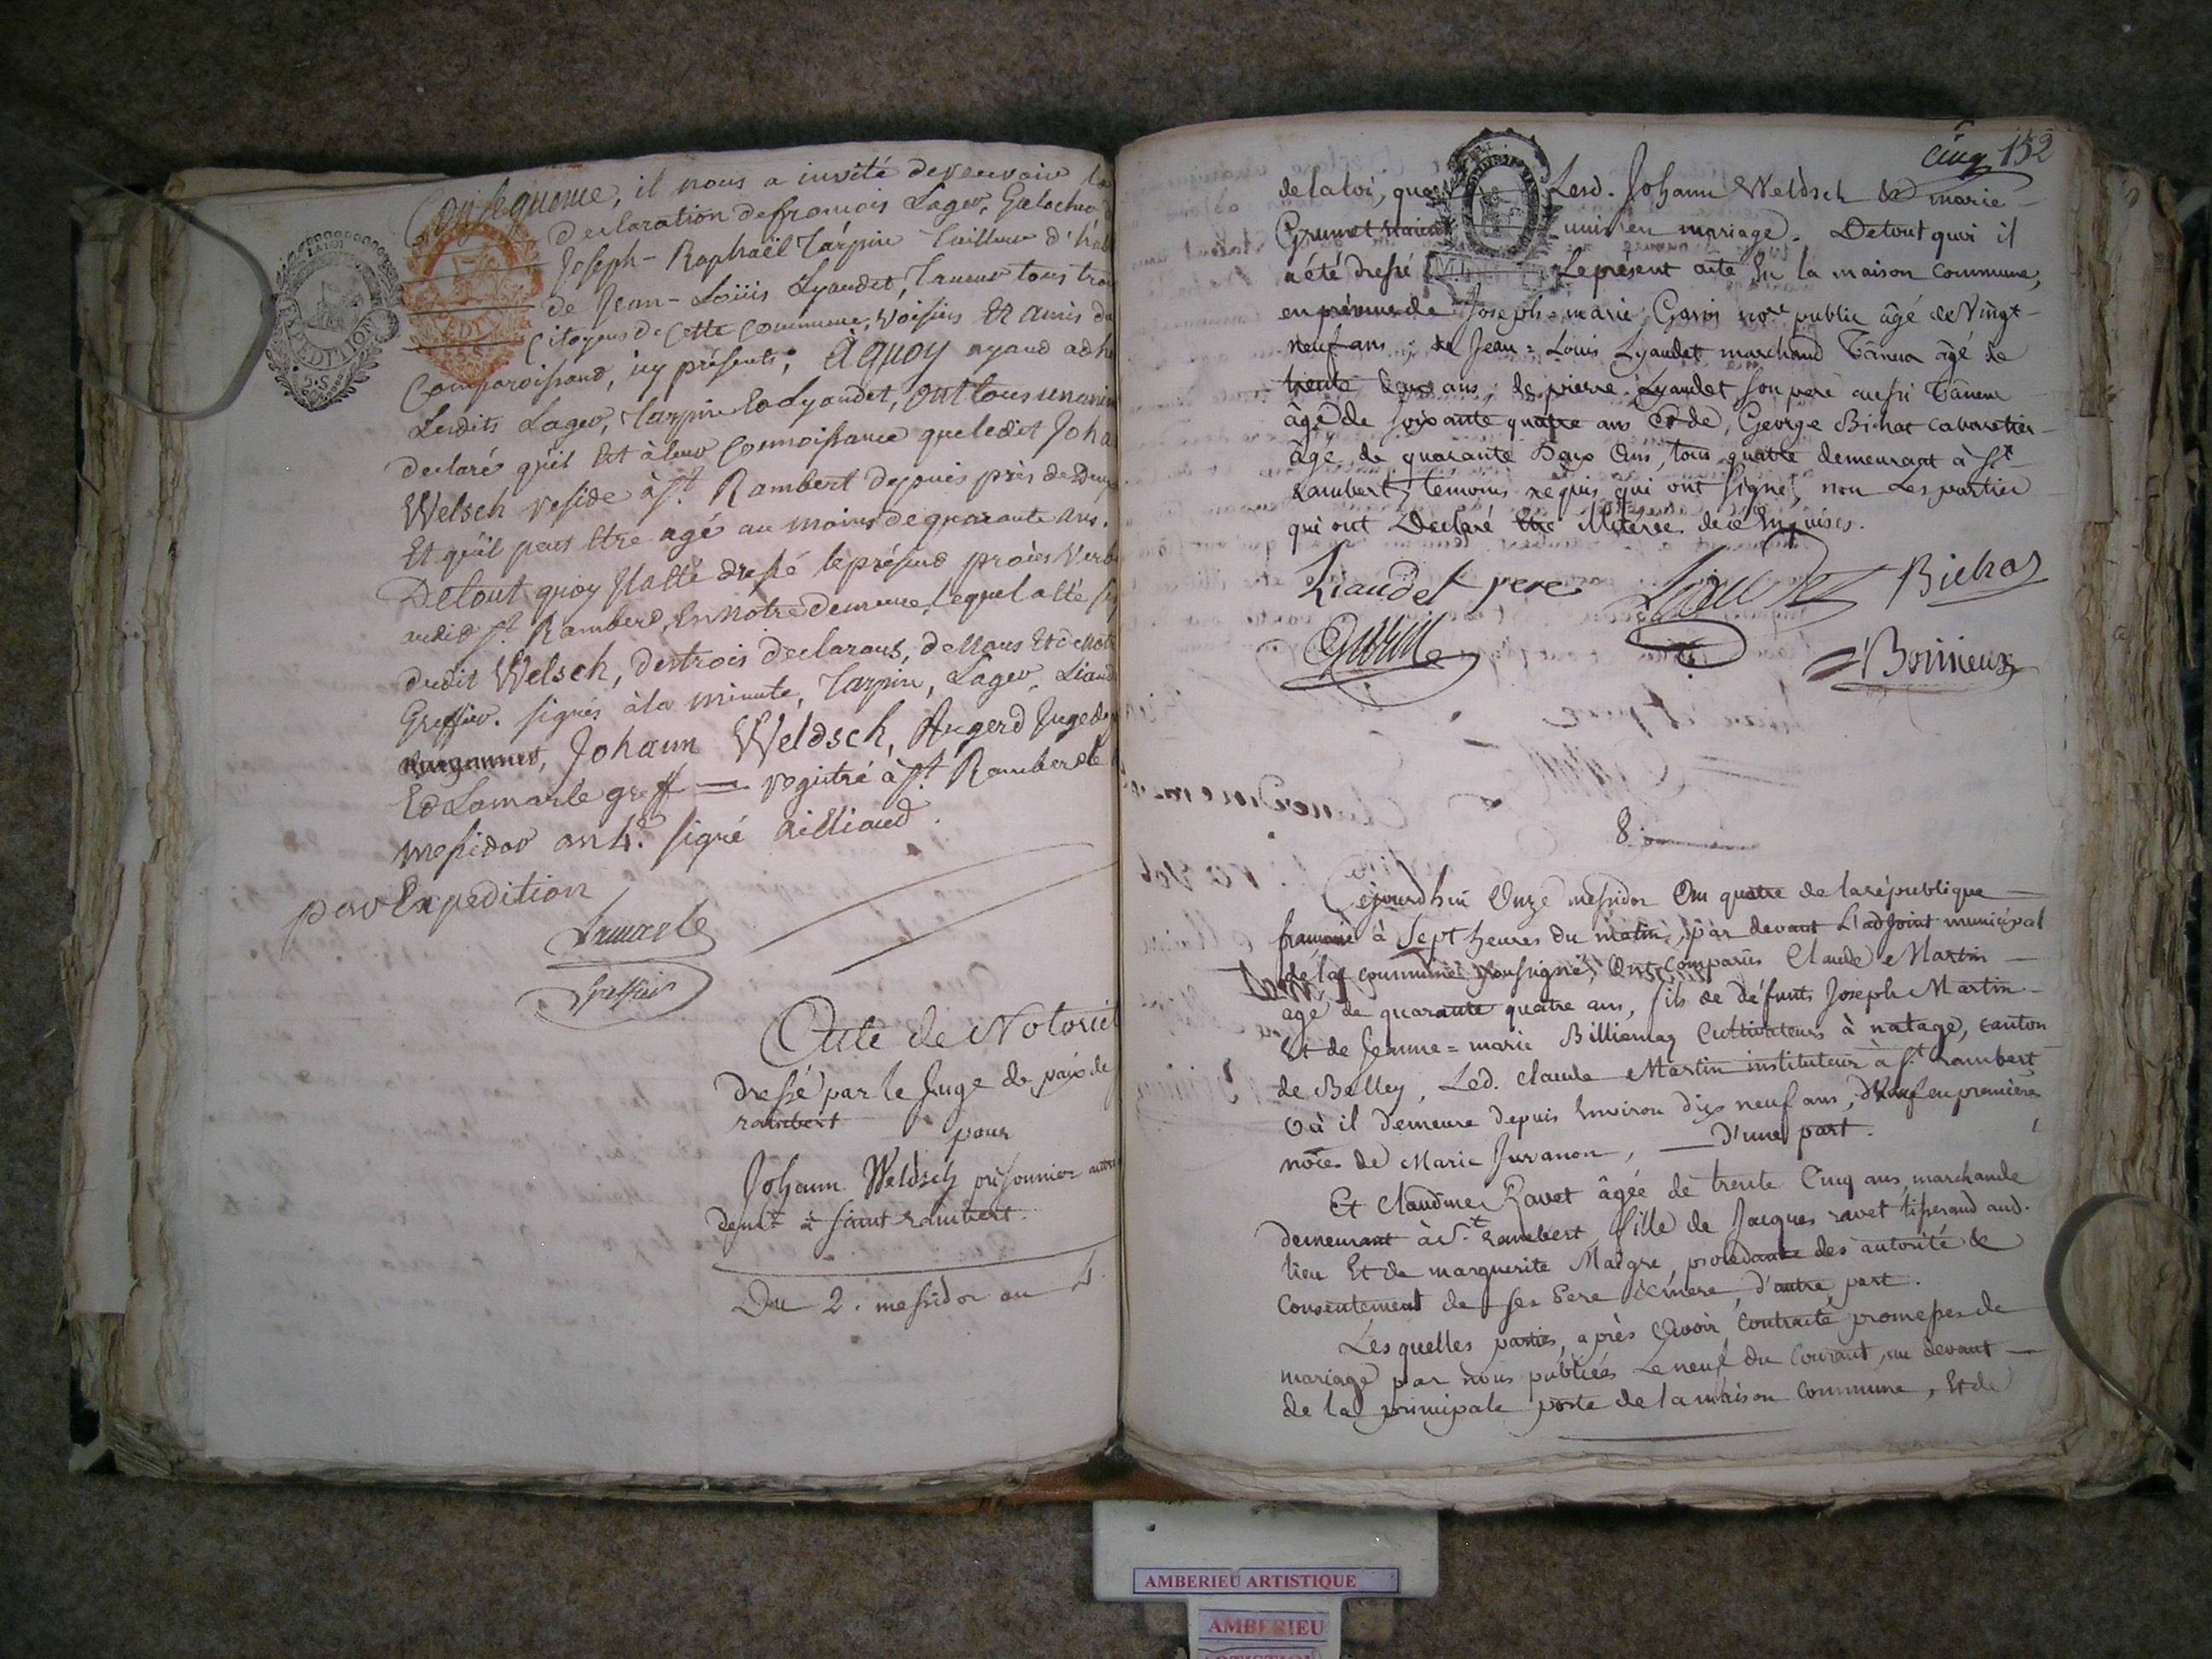 Consequence, il nous a invité de recevoir la
declaration de francois Lager, Galocher, d
Joseph-Raphaël Tarpin Tailleur d'hab
de Jean-Loüis Lyaudet, Taneur tous trois
Citoyens de Cette Commune, Voisins Et amis du
Comparoissand, icy présents; à quoy ayand adhe
Lesdits Lager, Tarpin Ed Lyaudet, ont tous unanim
declaré qu'il Est à leur Connoissance que ledit Joha
Welsch reside à St. Rambert depuis près de Deux
Et qu'il peut Etre agé au moins de quarante ans.
De tout quoy Il a été dressé le présend procès Verb
audit St. Ramberd, En notre demeure, lequel a été si
dudit Welsch, des trois declarans, de Nous Et de notre
Greffier. signés à la minute, Tarpin, Lager, Liaud
Johann Weldsch, Augerd Juge de
Ed Lamarle greff = registré à St. Ramberd le
messidor an 4e. signé Rilliaud.
par Expedition
Lamarle
Greffier
Acte de Notoriét
dressé par le Juge de paix de
rambert
pour
Johann Weldsch prisonnier autri
demt. à saint rambert.
Du 2. messidor an 4.
LA LOI
EXPEDITION
5.S.
cinq 152
de la loi, que Lesd. Johann Weldsch & marie
Grumet unis en mariage. De tout quoi il
a été dressé Le présent acte En la maison commune,
en présence de Joseph-marie Gavin nore. public âgé de Vingt-
neuf ans; de Jean-Louis Lyaudet marchand Tâneur âgé de
trente deux ans; de pierre Lyaudet son pere aussi Tâneur
âgé de soixante quatre ans Et de George Bichat cabaretier
âgé de quarante Deux Ans, tous quatre demeurant à St.
rambert, temoins requis qui ont signé, non Les parties
qui ont Declaré Etre illiterées de ce Enquises.
Liaudet pere Liaudet Bichat
Bonneux
8.
Cejourdhui Onze messidor An quatre de la république
francaise à Sept heures du matin, par devant L'adjoint municipal
de la commune soussigné, Ont Comparus Claude Martin
agé de quarante quatre ans, fils de défunts Joseph Martin
Et de Jeanne-marie Billiemaz Cultivateurs à natage, canton
de Belley, Led. claude Martin instituteur à St. rambert
Où il demeure depuis Environ dix neuf ans, Veuf en premières
nôces de Marie Juvanon, D'une part.
Et Claudine Ravet âgée de trente Cinq ans, marchande
demeurant à St. rambert, fille de Jacques ravet tisserand aud.
lieu Et de marguerite Maigre, procedante des autorité &
Consentement de ses Pere & mere, d'autre part.
Lesquelles parties, après Avoir Contracté promesses de
mariage par nous publiées Le neuf du Courant, au devant
de la principale porte de la maison Commune, Et de
AMBERIEU ARTISTIQUE
AMBERIEU
ARTISTIQUE